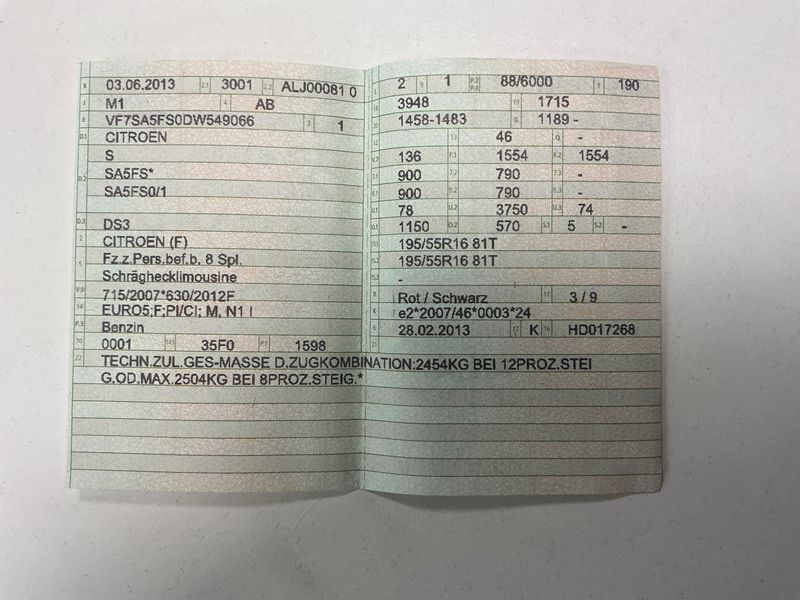 B 03.06.2013 2.1 3001 2.2 ALJ00081 0
J M1 4 AB
E VF7SA5FS0DW549066 3 1
D.1 CITROEN
S
D.2 SA5FS*
SA5FS0/1
D.3 DS3
2 CITROEN (F)
5 Fz.z.Pers.bef.b. 8 Spl.
Schräghecklimousine
V.9 715/2007*630/2012F
14 EURO5;F;PI/CI; M, N1 I
P.3 Benzin
10 0001 14.1 35F0 P.1 1598
22 TECHN.ZUL.GES-MASSE D.ZUGKOMBINATION:2454KG BEI 12PROZ.STEI
G.OD.MAX.2504KG BEI 8PROZ.STEIG.*
L 2 9 1 P.2 P.4 88/6000 T 190
18 3948 19 1715
20 1458-1483 G 1189 -
13 46 Q -
V.7 136 F.1 1554 F.2 1554
7.1 900 7.2 790 7.3 -
8.1 900 8.2 790 8.3 -
U.1 78 U.2 3750 U.3 74
O.1 1150 O.2 570 S.1 5 S.2 -
15.1 195/55R16 81T
15.2 195/55R16 81T
15.3 -
R Rot / Schwarz 11 3 / 9
K e2*2007/46*0003*24
6 28.02.2013 17 K 16 HD017268
21